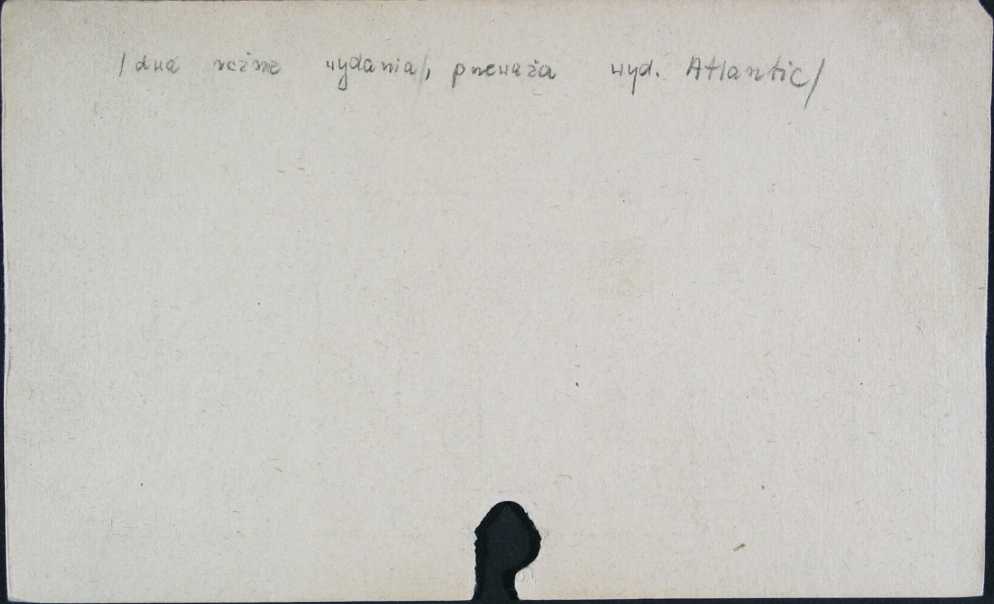 /dwa różne wydania/, przeważa wyd. Atlantic/